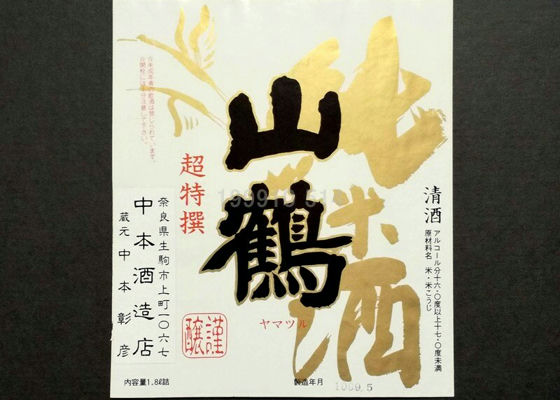 純米酒
山鶴
ヤマツル
超特撰
謹醸
清酒
アルコール分十六・〇度以上十七・〇度未満
原材料名 米・米こうじ
奈良県生駒市上町一〇六七
中本酒造店
蔵元 中本彰彦
内容量1.8ℓ詰
製造年月
1989.5